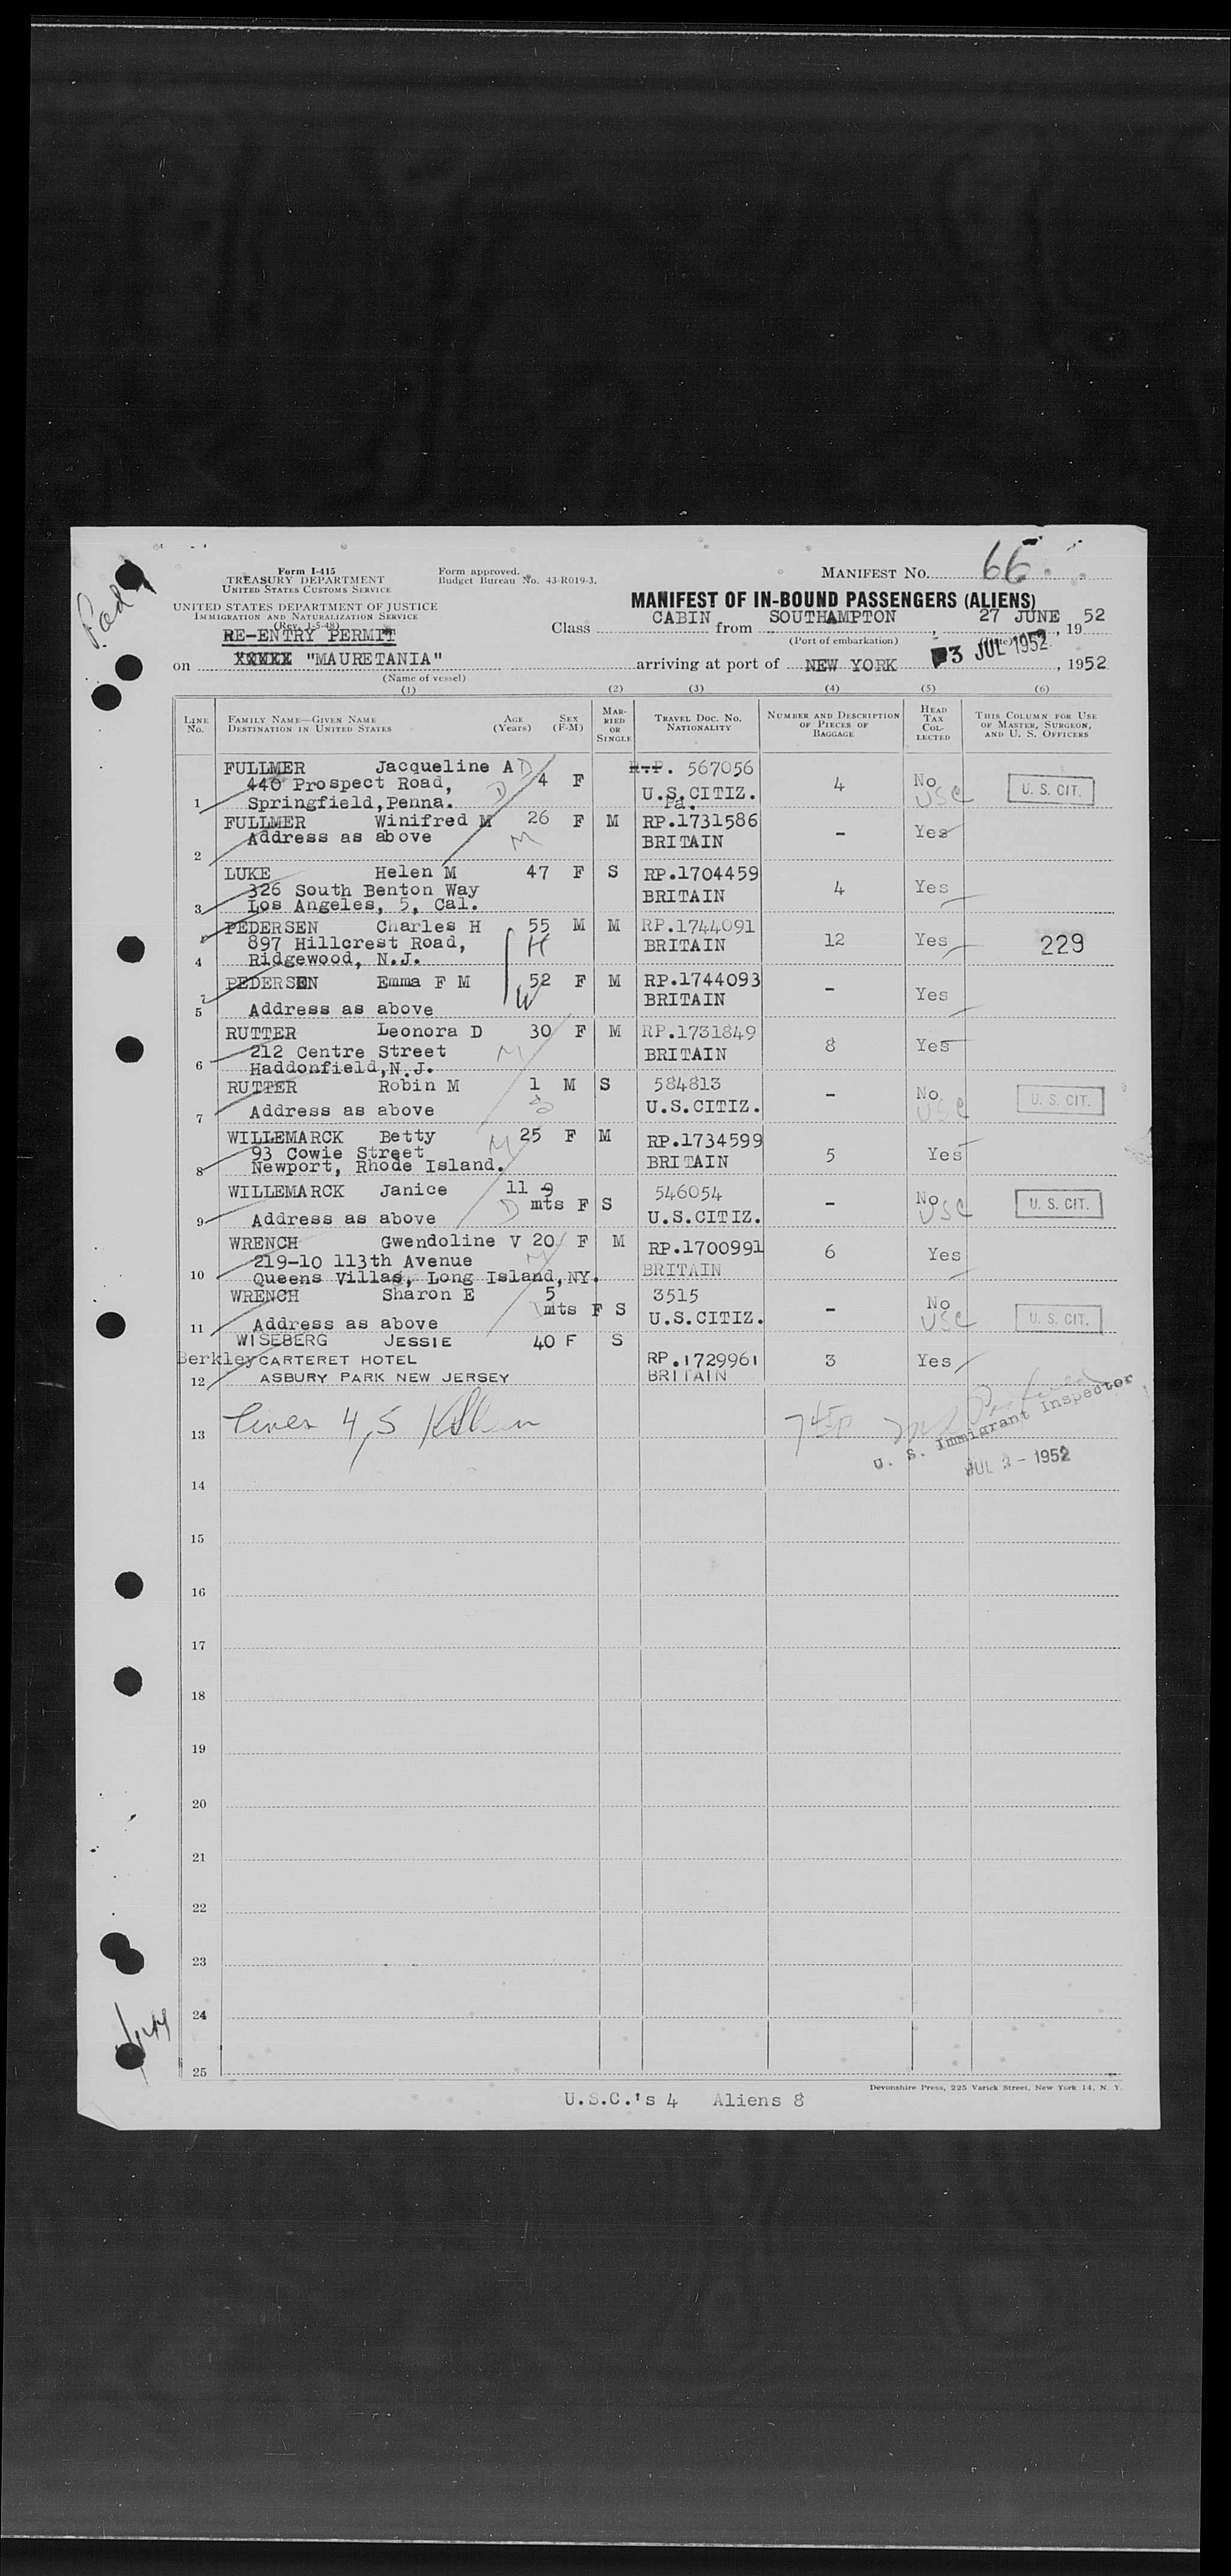 Form I-415
TREASURY DEPARTMENT
UNITED STATES CUSTOMS SERVICE
Form approved.
Budget Bureau No. 43-R019-3.
MANIFEST NO. 66
UNITED STATES DEPARTMENT OF JUSTICE
IMMIGRATION AND NATURALIZATION SERVICE
(Rev. 1-5-48)
RE-ENTRY PERMIT
MANIFEST OF IN-BOUND PASSENGERS (ALIENS)
Class CABIN from SOUTHAMPTON, 27 JUNE, 1952
(Port of embarkation) (Date)
on "MAURETANIA" arriving at port of NEW YORK 3 JUL 1952, 1952
(Name of vessel)
(1) (2) (3) (4) (5) (6)
LINE NO. FAMILY NAME—GIVEN NAME DESTINATION IN UNITED STATES AGE (Years) SEX (F-M) MARRIED OR SINGLE TRAVEL DOC. NO. NATIONALITY NUMBER AND DESCRIPTION OF PIECES OF BAGGAGE HEAD TAX COLLECTED THIS COLUMN FOR USE OF MASTER, SURGEON, AND U. S. OFFICERS
FULLMER Jacqueline A D 4 F R.P. 567056 4 No
440 Prospect Road, D U.S.CITIZ. USC U. S. CIT.
1 Springfield, Penna. Pa.
FULLMER Winifred M 26 F M RP.1731586 - Yes
2 Address as above M BRITAIN
LUKE Helen M 47 F S RP.1704459 4 Yes
326 South Benton Way BRITAIN
3 Los Angeles, 5, Cal.
PEDERSEN Charles H 55 M M RP.1744091 12 Yes 229
897 Hillcrest Road, H BRITAIN
4 Ridgewood, N.J.
PEDERSEN Emma F M 52 F M RP.1744093 - Yes
W BRITAIN
5 Address as above
RUTTER Leonora D 30 F M RP.1731849 8 Yes
212 Centre Street M BRITAIN
6 Haddonfield, N.J.
RUTTER Robin M 1 M S 584813 - No
7 Address as above S U.S.CITIZ. USC U. S. CIT.
WILLEMARCK Betty M 25 F M RP.1734599 5 Yes
93 Cowie Street BRITAIN
8 Newport, Rhode Island.
WILLEMARCK Janice 11 9 mts F S 546054 - No
9 Address as above D U.S.CITIZ. USC U. S. CIT.
WRENCH Gwendoline V 20 F M RP.1700991 6 Yes
219-10 113th Avenue M BRITAIN
10 Queens Villas, Long Island, NY.
WRENCH Sharon E 5 mts F S 3515 - No
11 Address as above U.S.CITIZ. USC U. S. CIT.
WISEBERG JESSIE 40 F S
Berkley CARTERET HOTEL RP.1729961 3 Yes
12 ASBURY PARK NEW JERSEY BRITAIN
13 lines 4, 5
U. S. Immigrant Inspector
JUL 3 - 1952
14
15
16
17
18
19
20
21
22
23
24
25
Devonshire Press, 225 Varick Street, New York 14, N. Y.
U.S.C.'s 4 Aliens 8